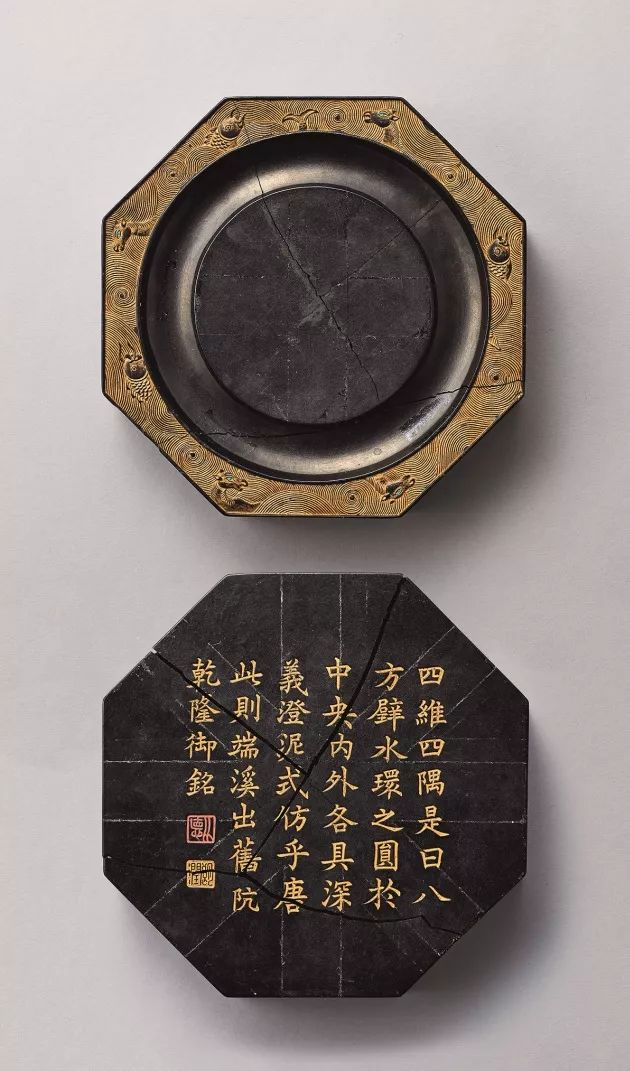 四維四隅是曰八
方璧水環之圓於
中央內外各具深
義澄泥式仿乎唐
此則端溪出舊阬
乾隆御銘